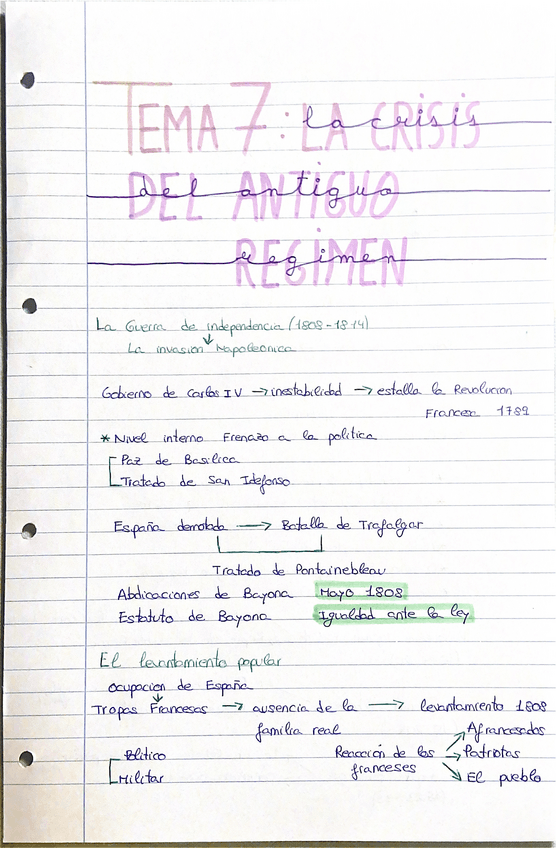 TEMA 7: LA CRISIS
la crisis
DEL ANTIGUO
del antiguo
REGIMEN
regimen
La Guerra de independencia (1808-1814)
↓
La invasion Napoleonica
Gobierno de Carlos IV → inestabilidad → estalla la Revolucion
Francex 1782
* Nivel interno Frenazo a la politica
Paz de Basilica
Tratado de San Idefonso
España derrotada → Batalla de Trafalgar
Tratado de Fontainebleau
Abdicaciones de Bayona Mayo 1808
Estatuto de Bayona Igualdad ante la ley
El levantamiento popular
ocupacion de España
↓
Tropas Francesas → ausencia de la → levantamiento 1808
familia real
Afrancesados
Politico Reacción de los → Patriotas
franceses
Militar El pueblo